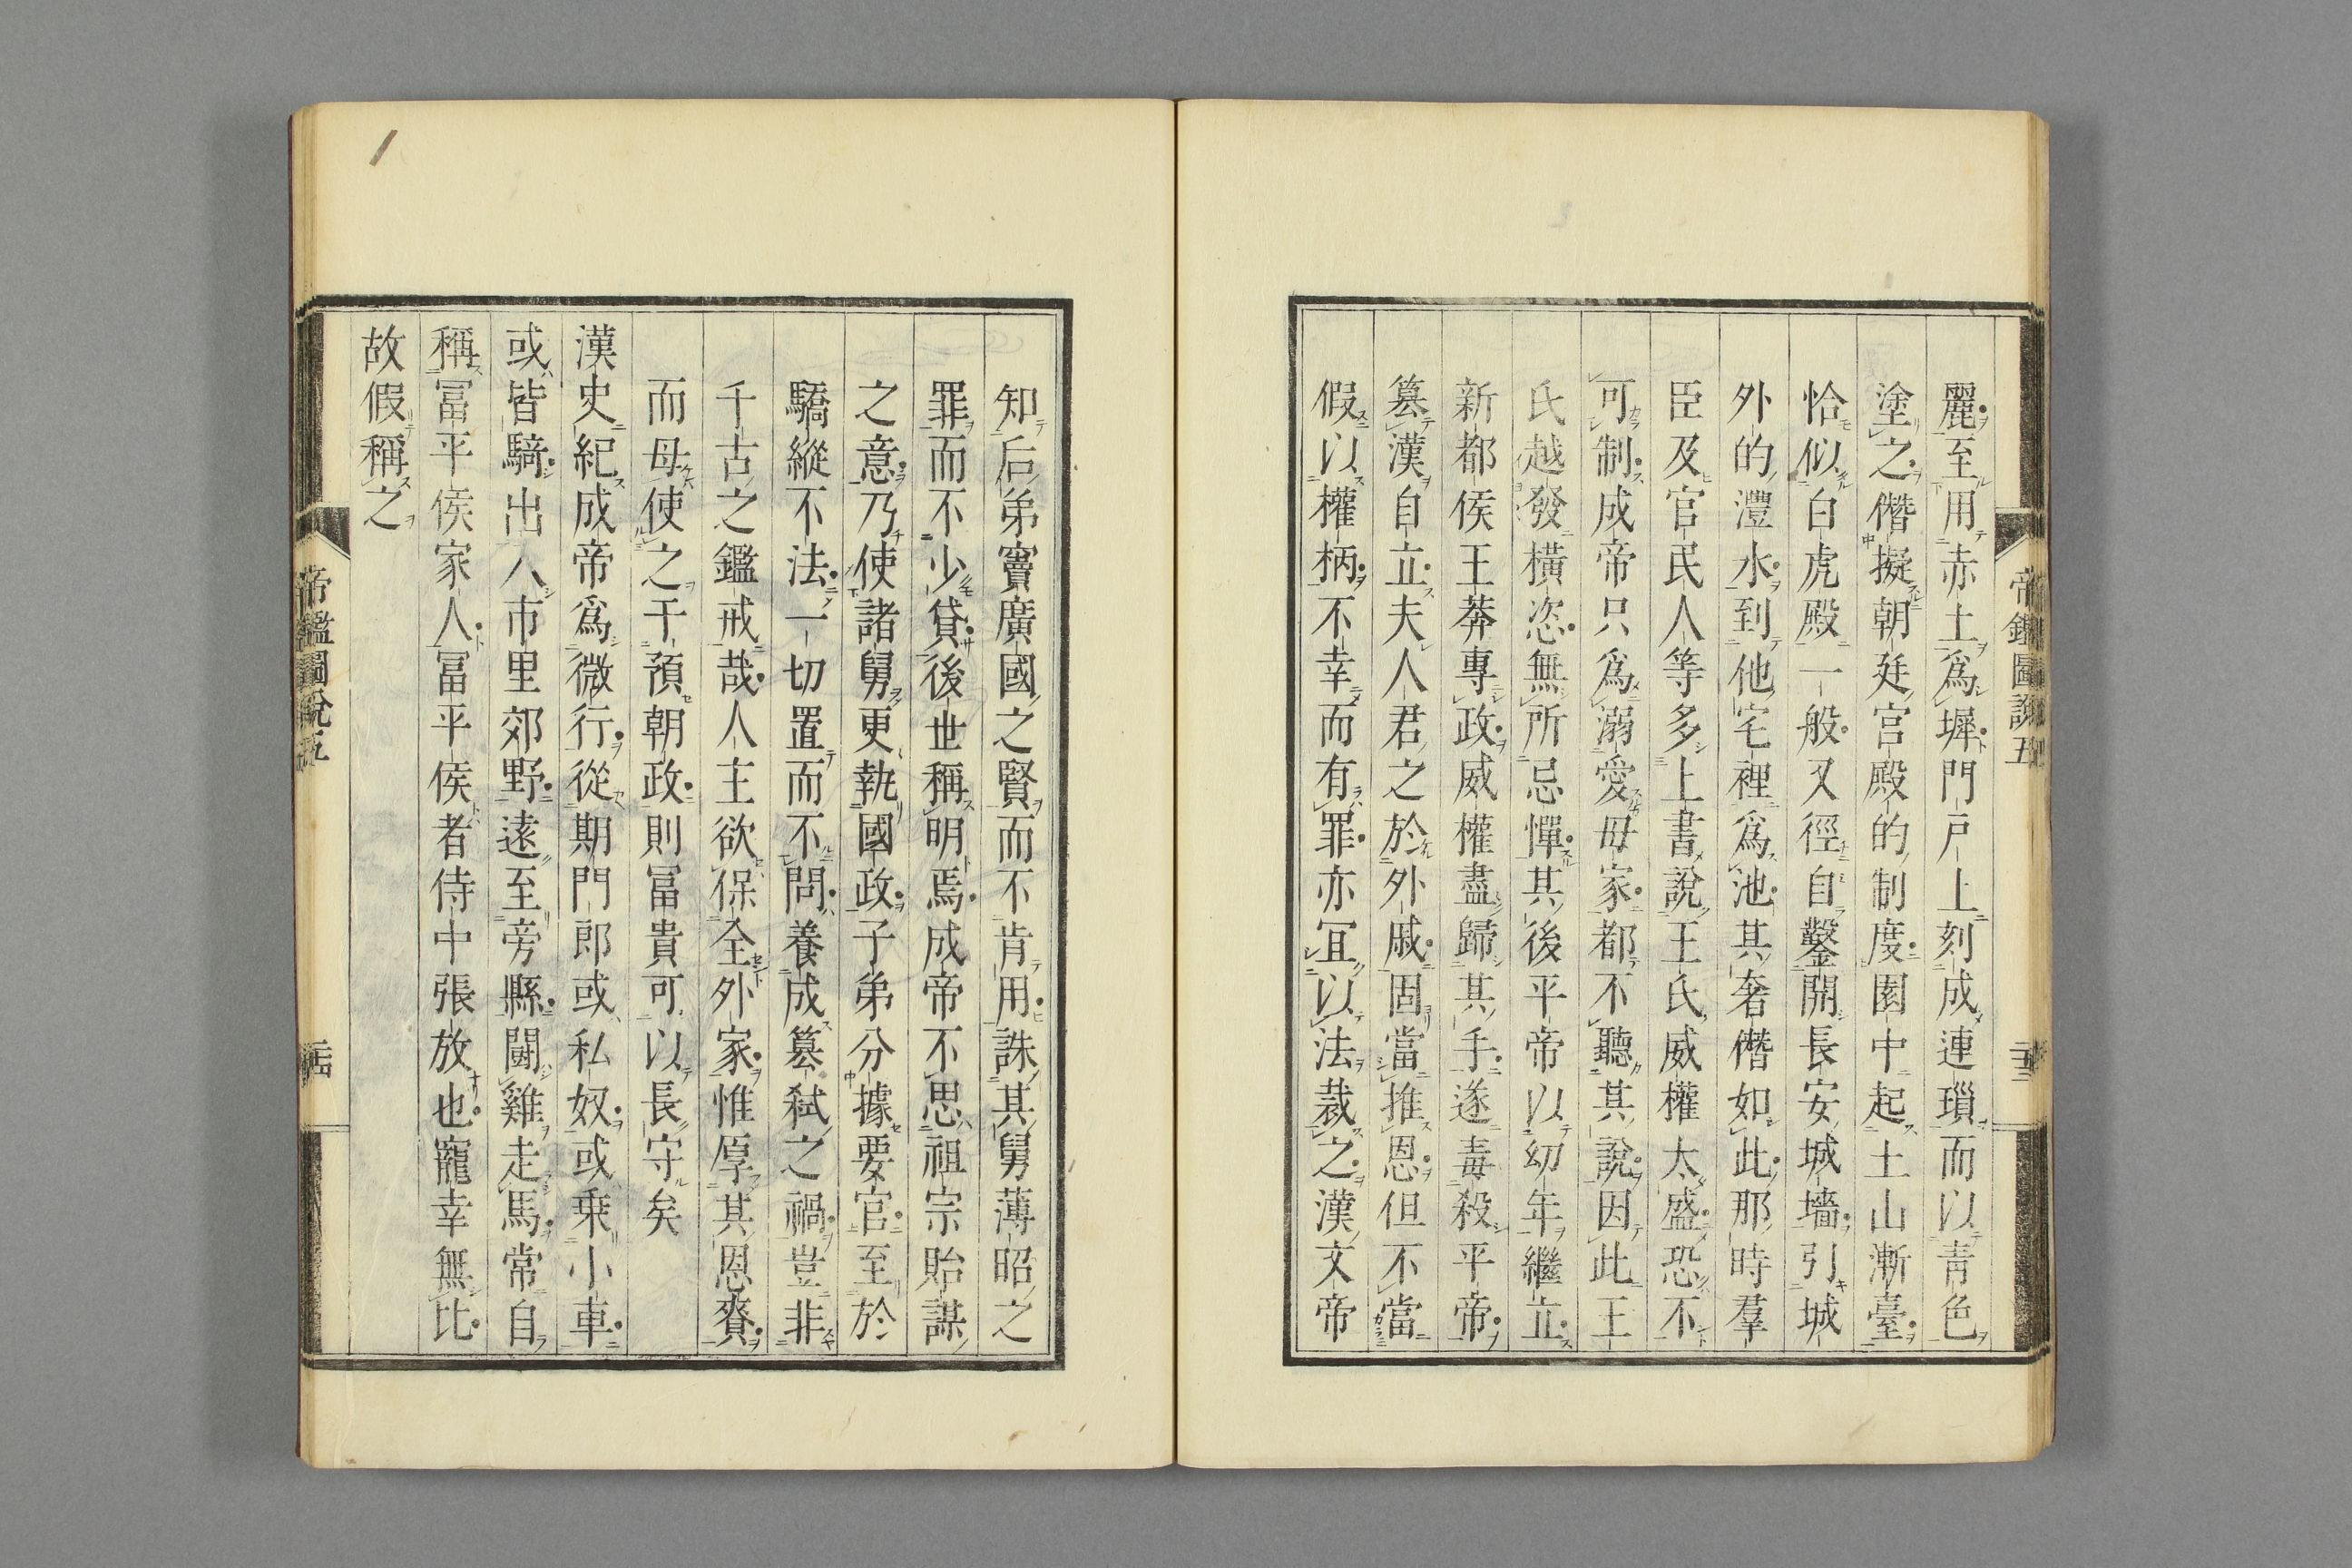 麗至用赤土爲墀門戸上刻成連瑣而以青色
塗之僭擬朝廷宮殿的制度園中起土山漸臺
恰似白虎殿一般又徑自鑿開長安城墻引城
外的灃水到他宅裡爲池其奢僭如此那時羣
臣及官民人等多上書說王氏威權太盛恐不
可制成帝只爲溺愛母家都不聽其說因此王
氏越發横恣無所忌憚其後平帝以幼年繼立
新都侯王莽專政威權盡歸其手遂毒殺平帝
簒漢自立夫人君之於外戚固當推恩但不當
假以權柄不幸而有罪亦冝以法裁之漢文帝
帝鑑圖說五
知后弟竇廣國之賢而不肯用誅其舅薄昭之
罪而不少貸後世稱明焉成帝不思祖宗貽謀
之意乃使諸舅更執國政子弟分據要官至於
驕縱不法一切置而不問養成簒弑之禍豈非
千古之鑑戒哉人主欲保全外家惟厚其恩賚
而毋使之干預朝政則冨貴可以長守矣
漢史紀成帝爲微行從期門郎或私奴或乗小車
或皆騎出入市里郊野遠至旁縣鬪雞走馬常自
稱冨平侯家人冨平侯者侍中張放也寵幸無比
故假稱之
帝鑑圖說五